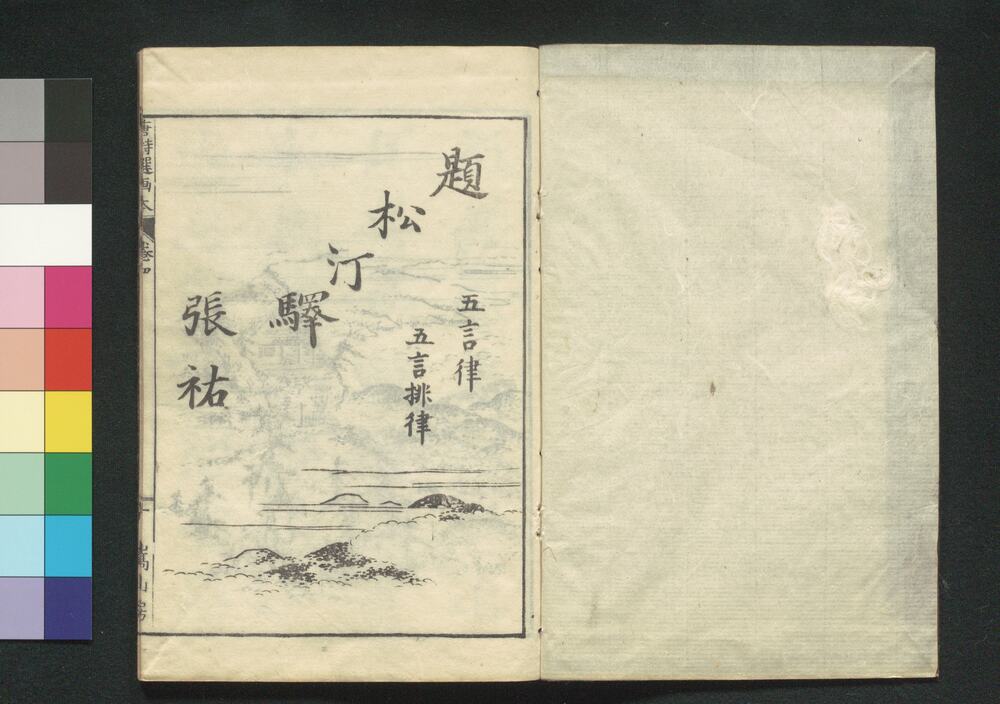 題松汀驛
五言律
五言排律
張祐
唐詩選画本
卷四
嵩山房